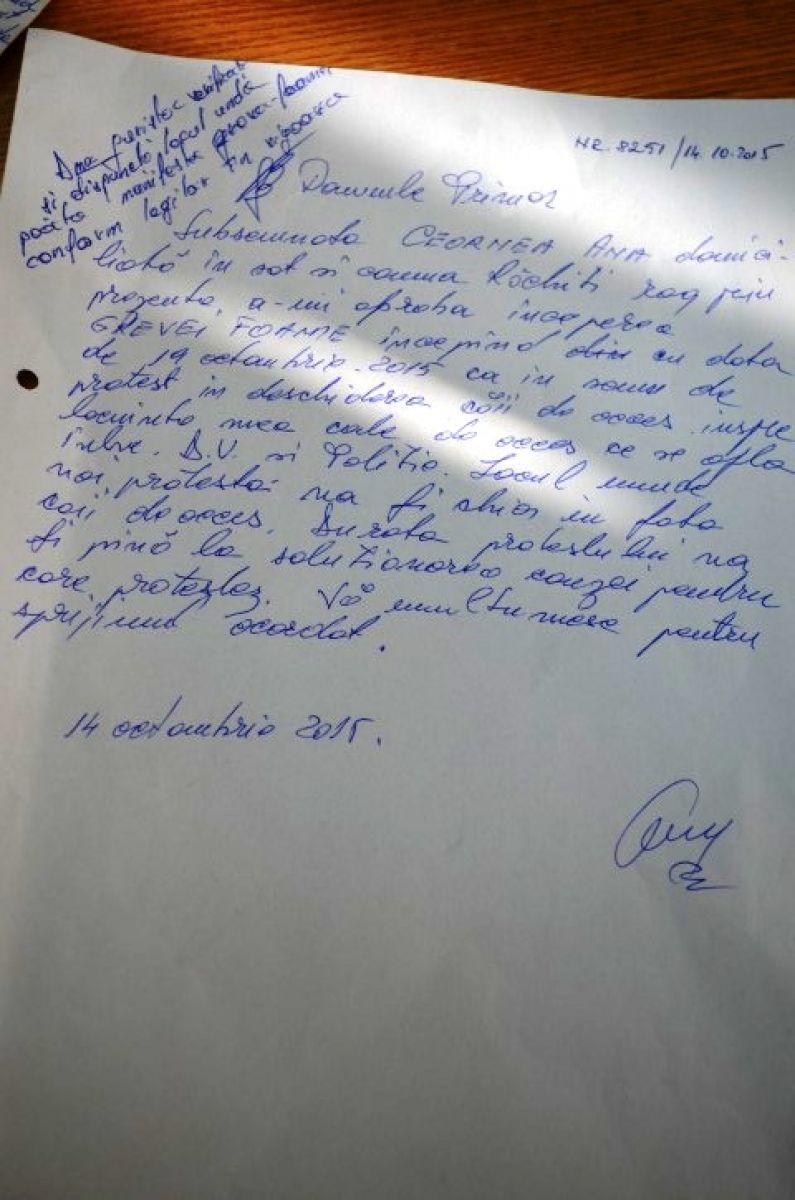 NR. 8251/14.10.2015
Dna jurista verificați
și dispuneți locul unde
poate manifesta greva foamei
conform legilor în vigoare
Domnule Primar
Subsemnata CEORNEA ANA domici-
liată în sat si comuna Răchiti rog prin
prezenta, a-mi aproba inceperea
GREVEI FOAME începînd din cu data
de 19 octombrie 2015 ca in semn de
protest in deschiderea căii de acces inspre
locuinta mea cale de acces ce se afla
intre. D.V. si Politie. Locul unde
voi protesta va fi chiar in fata
caii de acces. Durata protestului va
fi pînă la solutionarea cauzei pentru
care protestez. Vă multumesc pentru
sprijinul acordat.
14 octombrie 2015.